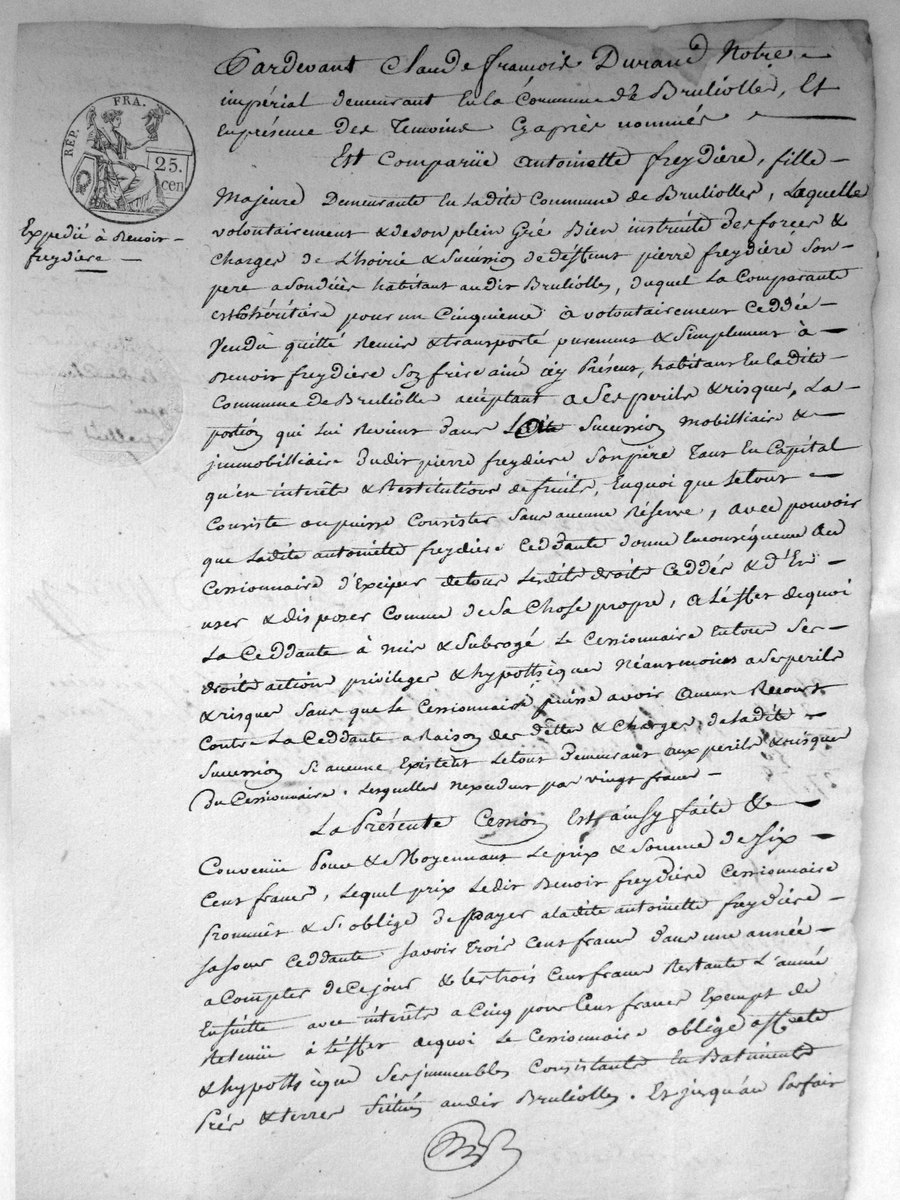 RÉP. FRA.
25.
cen
Expedié à Benoit
freydiere
Pardevant Claude françois Durand Notre
impérial demeurant En la Commune de Brullolles, Et
En présence Des Temoins Cy après nommés
Est Comparüe antoinette freydiere, fille
Majeure Demeurante En Ladite Commune de Brullolles, Laquelle
volontairement & de son plein Gré Bien instruite des forces &
Charges de L'hoirie & Sucession de deffunt pierre freydiere Son
pere a son décès habitant audit Brullolles, duquel La Comparante
est Cohéritière pour un Cinquieme à volontairement Ceddée
Vendu quitté Remis & transporté purement & Simplement à
Benoit freydiere Son frère ainé icy Présent, habitant En Ladite
Commune de Brullolles acceptant a Ses perils & risques, La
portion qui Lui Revient Dans La Sucession mobilliaire &
immobilliaire Dudit pierre freydiere Son père Tant En Capital
qu'en interêts & Restitutions de fruits, En quoi que Le tout
Consiste ou puisse Consister Sans aucune Réserve, avec pouvoir
que Ladite antoinette freydiere Ceddante donne En conséquence Au
Cessionnaire d'Exciper de tous Lesdits droits Ceddés & d'En
user & disposer Comme de Sa Chose propre, a L'effet de quoi
La Ceddante à mis & Subrogé Le Cessionnaire En tous Ses
droits action privileges & hypothèques Néanmoins a Ses perils
& risques Sans que Le Cessionnaire puisse avoir Aucun Recours
Contre La Ceddante a Raison des dettes & Charges de Ladite
Sucession Si aucune Existent Le tout Demeurant aux perils & risques
Du Cessionnaire. Lesquelles N'excedent pas vingt francs
La Présente Cession Est ainsy faite &
Convenüe Pour & Moyennant Le prix & Somme de Six
Cent francs, Lequel prix Ledit Benoit freydiere Cessionnaire
Promet & S'oblige De payer a Ladite antoinette freydiere
Sa Soeur Ceddante Savoir Trois Cent francs Dans une année
a Compter de Ce jour & Les trois Cent francs Restants L'année
Ensuitte avec interêts a Cinq pour Cent francs Exempt de
Retenüe à L'effet de quoi Le Cessionnaire oblige affecte
& hypothèque Ses immeubles Consistants En Batiments
Prés & terres Situés audit Brullolles. Et jusqu'au Parfait